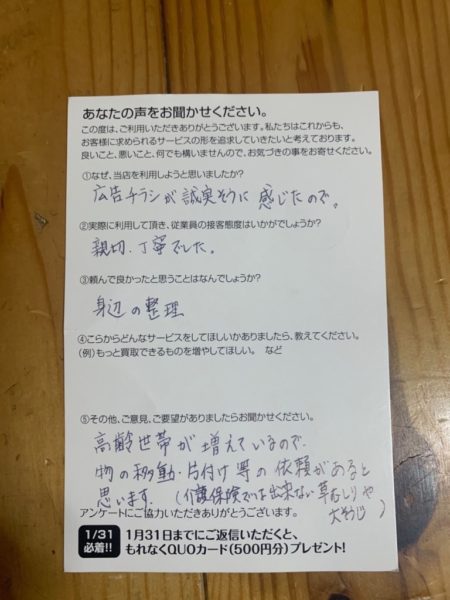 あなたの声をお聞かせください。
この度は、ご利用いただきありがとうございます。私たちはこれからも、
お客様に求められるサービスの形を追求していきたいと考えております。
良いこと、悪いこと、何でも構いませんので、お気づきの事をお寄せください。
①なぜ、当店を利用しようと思いましたか?
広告チラシが誠実そうに感じたので。
②実際に利用して頂き、従業員の接客態度はいかがでしょうか?
親切、丁寧でした。
③頼んで良かったと思うことはなんでしょうか?
身辺の整理
④こらからどんなサービスをしてほしいかありましたら、教えてください。
(例)もっと買取できるものを増やしてほしい。 など
⑤その他、ご意見、ご要望がありましたらお聞かせください。
高齢世帯が増えているので、
物の移動・片付け等の依頼があると
思います。(介護保険では出来ない草むしりや
大そうじ)
アンケートにご協力いただきありがとうございます。
1/31
必着!!
1月31日までにご返信いただくと、
もれなくQUOカード(500円分)プレゼント!